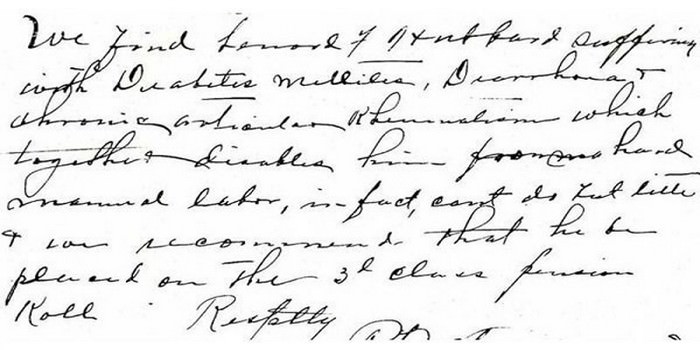 We find Lenord F Hubbard suffering
with Diabetes Mellites, Diarrhoea &
chronic articular Rheumatism which
together disables him from hard
manual labor, in fact, cant do but little
& we recommend that he be
placed on the 3d class pension
Roll Resptly